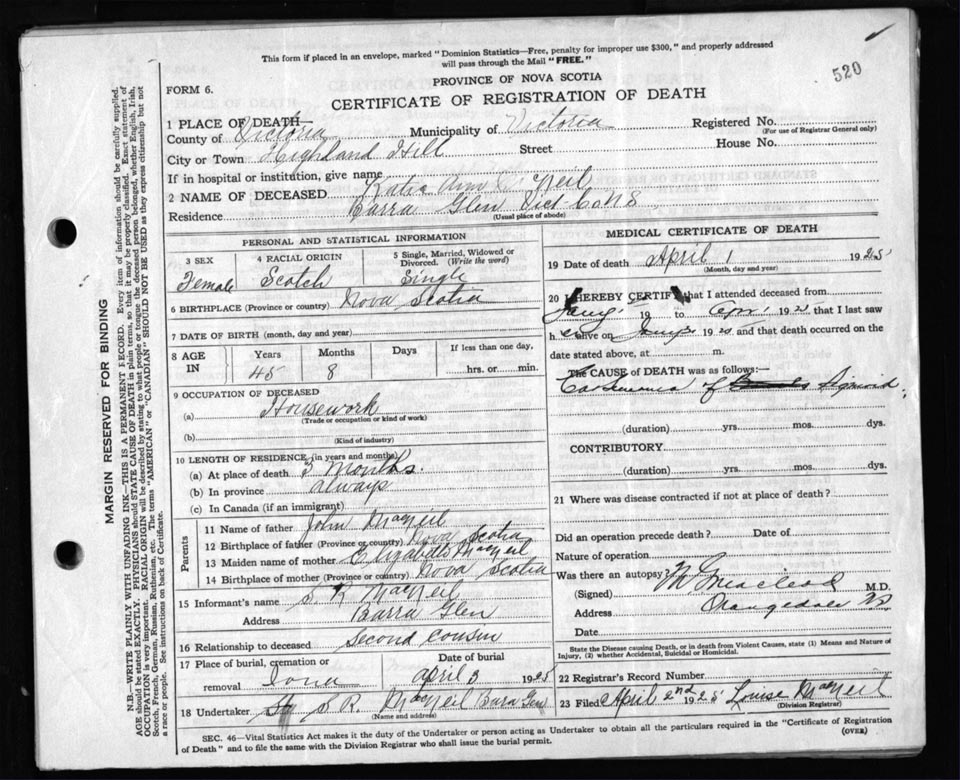 This form if placed in an envelope, marked "Dominion Statistics—Free, penalty for improper use $300," and properly addressed
will pass through the Mail "FREE."
520
FORM 6.
PROVINCE OF NOVA SCOTIA
CERTIFICATE OF REGISTRATION OF DEATH
1 PLACE OF DEATH—
County of Victoria Municipality of Victoria Registered No.
(For use of Registrar General only)
City or Town Highland Hill Street House No.
If in hospital or institution, give name
2 NAME OF DECEASED Katie Ann
Residence Barra Glen Vict Co NS
(Usual place of abode)
PERSONAL AND STATISTICAL INFORMATION
3 SEX 4 RACIAL ORIGIN 5 Single, Married, Widowed or Divorced. (Write the word)
Female Scotch Single
6 BIRTHPLACE (Province or country) Nova Scotia
7 DATE OF BIRTH (month, day and year)
8 AGE IN Years Months Days If less than one day,
45 8 hrs. or min.
9 OCCUPATION OF DECEASED
(a) Housework
(Trade or occupation or kind of work)
(b)
(Kind of industry)
10 LENGTH OF RESIDENCE (in years and months)
(a) At place of death 3 months.
(b) In province always
(c) In Canada (if an immigrant)
Parents
11 Name of father John MacNeil
12 Birthplace of father (Province or country) Nova Scotia
13 Maiden name of mother Elizabeth MacNeil
14 Birthplace of mother (Province or country) Nova Scotia
15 Informant's name S R MacNeil
Address Barra Glen
16 Relationship to deceased Second Cousin
17 Place of burial, cremation or Date of burial
removal Iona april 3 1925
18 Undertaker S R MacNeil Bara Glen
(Name and address)
MEDICAL CERTIFICATE OF DEATH
19 Date of death April 1 1925
(Month, day and year)
20 I HEREBY CERTIFY that I attended deceased from
19 to 192 that I last saw
h alive on 192 and that death occurred on the
date stated above, at m.
The CAUSE of DEATH was as follows:—
Carcinoma of Sigmoid
(duration) yrs. mos. dys.
CONTRIBUTORY
(duration) yrs. mos. dys.
21 Where was disease contracted if not at place of death?
Did an operation precede death? Date of
Nature of operation
Was there an autopsy?
(Signed) MacLeod M.D.
Address Orangedale NS
Date
State the Disease causing Death, or in death from Violent Causes, state (1) Means and Nature of
Injury, (2) whether Accidental, Suicidal or Homicidal.
22 Registrar's Record Number
23 Filed April 2nd 1925 Louise MacNeil
(Division Registrar)
SEC. 46—Vital Statistics Act makes it the duty of the Undertaker or person acting as Undertaker to obtain all the particulars required in the "Certificate of Registration
of Death" and to file the same with the Division Registrar who shall issue the burial permit.
(OVER)
MARGIN RESERVED FOR BINDING
N.B.—WRITE PLAINLY WITH UNFADING INK—THIS IS A PERMANENT RECORD. Every item of information should be carefully supplied.
AGE should be stated EXACTLY. PHYSICIANS should STATE CAUSE OF DEATH in plain terms, so that it may be properly classified. Exact statement of
OCCUPATION is very important. RACIAL ORIGIN will be described by stating to what people or tongue the deceased person belonged, whether English, Irish,
Scotch, French, German, Russian, Ruthenian, etc. The terms "AMERICAN" or "CANADIAN" SHOULD NOT BE USED as they express citizenship but not
a race or people. See instructions on back of Certificate.